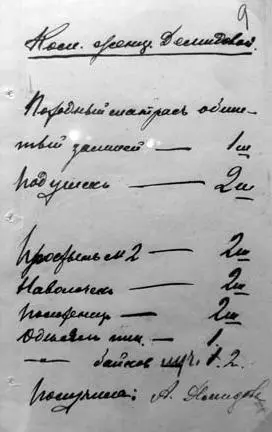 9
Посл. женщ. Демидовой.
Походный матрасъ обши-
тый замшей — 1 ш
Подушекъ — 2 ш
Простынь № 2 — 2 ш
Наволочекъ — 2 ш
Полотенцъ — 2 ш
Одѣялъ пик. — 1.
—"— байков 2.
Получила: А. Демидова